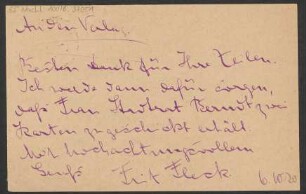 An den Verlag
Besten Dank für Ihre Zeilen.
Ich werde dann dafür sorgen,
daß Frau Kernit zwei
Karten zugeschickt erhält
Mit hochachtungsvollem
Gruß Fritz Fleck